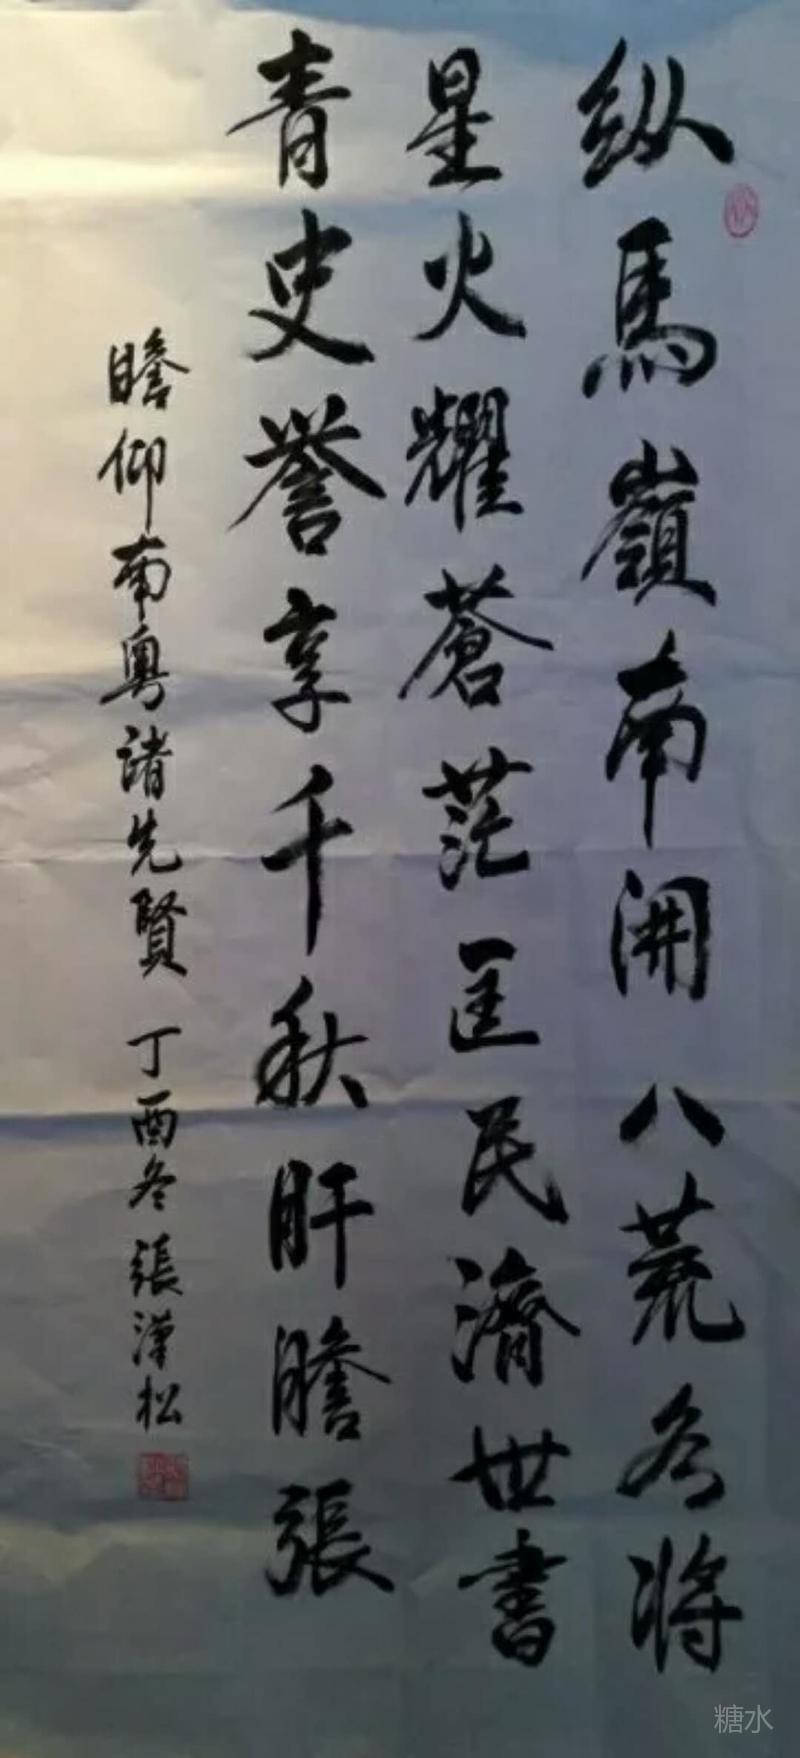 纵馬嶺南開八荒为将
星火耀蒼茫匡民濟世書
青史譽享千秋肝膽張
瞻仰南粵諸先賢 丁酉冬 張漢松
糖水